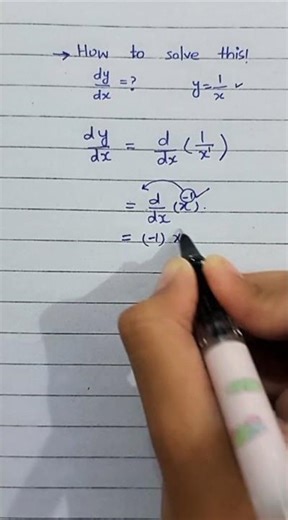 → How to solve this!
dy/dx = ? y = 1/x ✓
dy/dx = d/dx (1/x¹)
= d/dx (x⁻¹). ✓
= (-1) x